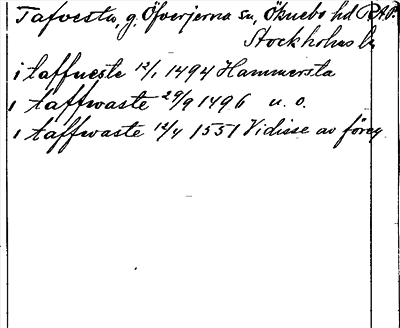 Tafvesta, g. Öfverjerna sn, Öknebo hd R.A.P.
Stockholms län
i taffueste 12/1 1494 Hammersta
i taffwaste 29/9 1496 u. o.
i taffwaste 12/4 1551 Vidisse av föreg